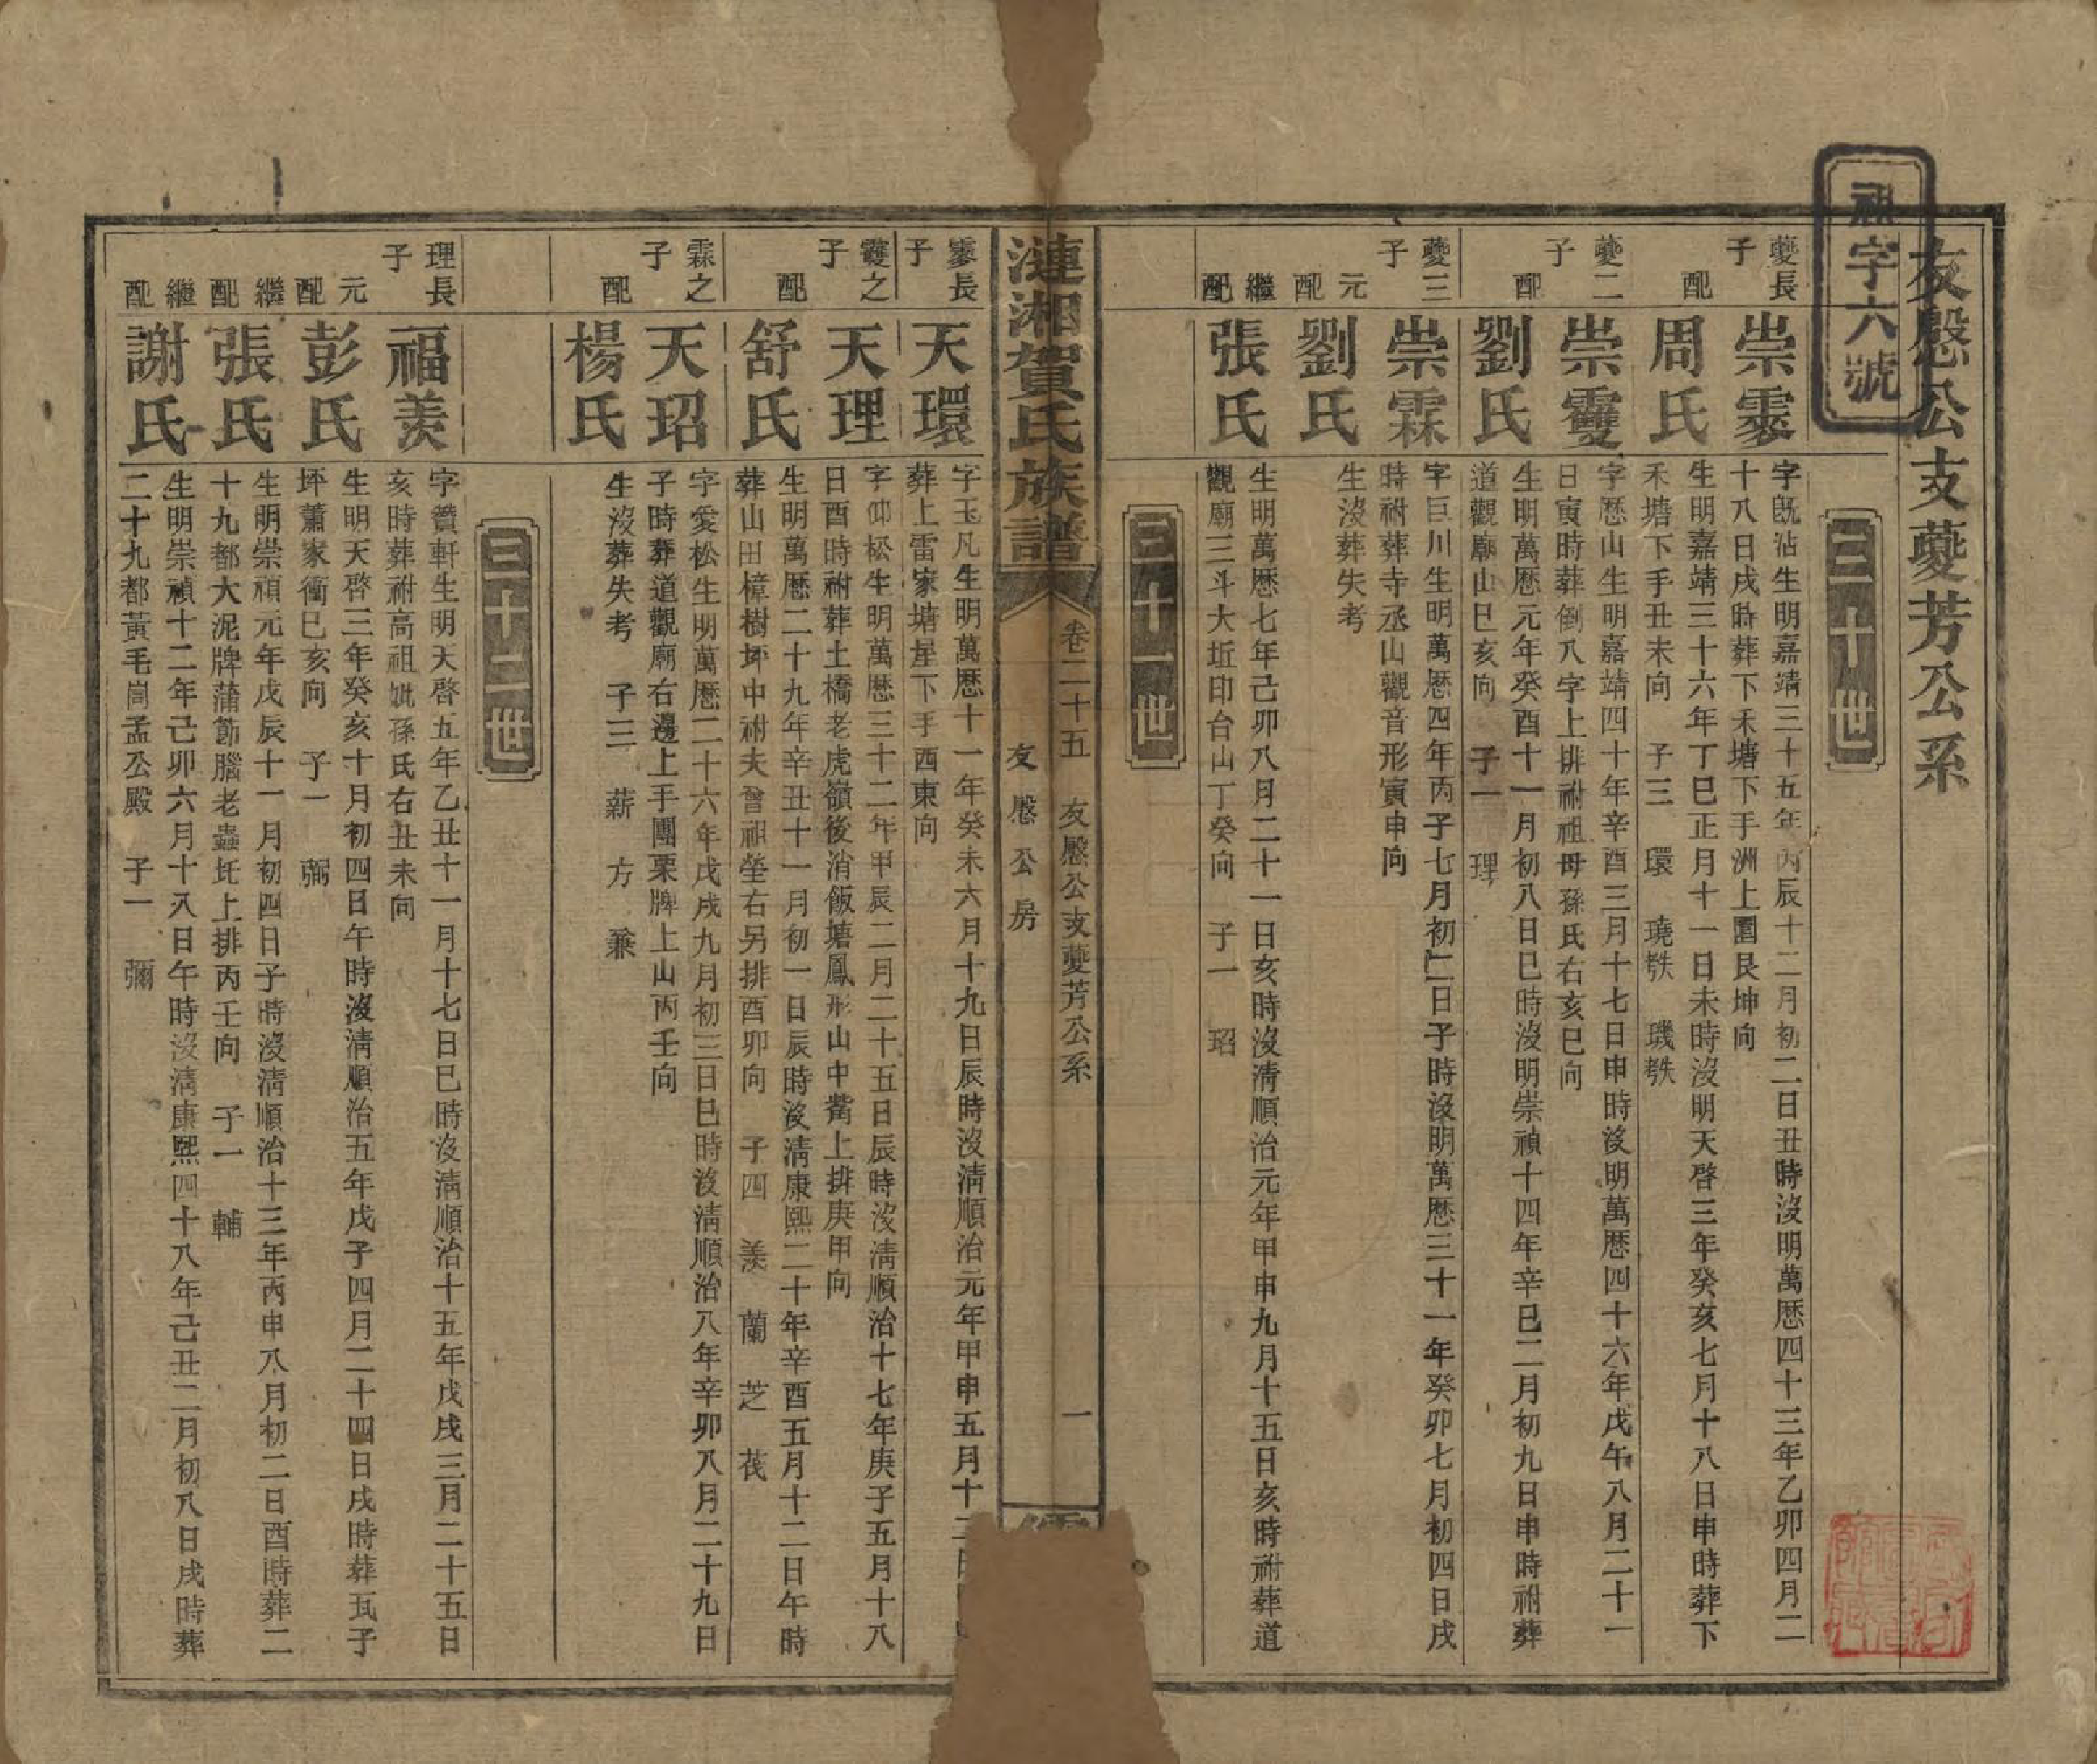 友慇公支夔芳公系
祖字六號
三十世
夔長子
崇霥
字旣沾生明嘉靖三十五年丙辰十二月初二日丑時沒明萬歷四十三年乙卯四月二
十八日戌時葬下禾塘下手洲上園艮坤向
配
周氏
生明嘉靖三十六年丁巳正月十一日未時沒明天啓三年癸亥七月十八日申時葬下
禾塘下手丑未向 子三 環 𤩊殀 璣殀
夔二子
崇霻
字歷山生明嘉靖四十年辛酉三月十七日申時沒明萬歷四十六年戊午八月二十一
日寅時葬倒八字上排祔祖母孫氏右亥巳向
配
劉氏
生明萬歷元年癸酉十一月初八日巳時沒明崇禎十四年辛巳二月初九日申時祔葬
道觀廟山巳亥向 子一 理
夔三子
崇霖
字巨川生明萬歷四年丙子七月初二日子時沒明萬歷三十一年癸卯七月初四日戌
時祔葬寺丞山觀音形寅申向
元配
劉氏
生沒葬失考
繼配
張氏
生明萬歷七年己卯八月二十一日亥時沒淸順治元年甲申九月十五日亥時祔葬道
觀廟三斗大坵印台山丁癸向 子一 玿
三十一世
漣湘賀氏族譜
卷二十五 友慇公支夔芳公系 一
友慇公房
霥長子
天環
字玉凡生明萬歷十一年癸未六月十九日辰時沒淸順治元年甲申五月十二日
葬上雷家塘屋下手酉東向
之子
天理
字仰松生明萬歷三十二年甲辰二月二十五日辰時沒淸順治十七年庚子五月十八
日酉時祔葬土橋老虎嶺後消飯塘鳳形山中觜上排庚甲向
配
舒氏
生明萬歷二十九年辛丑十一月初一日辰時沒淸康熙二十年辛酉五月十二日午時
葬山田樟樹坪中祔夫曾祖塋右另排酉卯向 子四 羨 蘭 芝 茂
霖之子
天玿
字愛松生明萬歷二十六年戊戌九月初三日巳時沒淸順治八年辛卯八月二十九日
子時葬道觀廟右邊上手團栗牌上山丙壬向
配
楊氏
生沒葬失考 子三 薪 方 兼
三十二世
理長子
福羨
字贊軒生明天啓五年乙丑十一月十七日巳時沒淸順治十五年戊戌三月二十五日
亥時葬祔高祖妣孫氏右丑未向
元配
彭氏
生明天啓三年癸亥十月初四日午時沒淸順治五年戊子四月二十四日戌時葬瓦子
坪蕭家衝巳亥向 子一 弼
繼配
張氏
生明崇禎元年戊辰十一月初四日子時沒淸順治十三年丙申八月初二日酉時葬二
十九都大泥牌蒲節腦老蟲圫上排丙壬向 子一 輔
繼配
謝氏
生明崇禎十二年己卯六月十八日午時沒淸康熙四十八年己丑二月初八日戌時葬
二十九都黃毛崗孟公殿 子一 彌